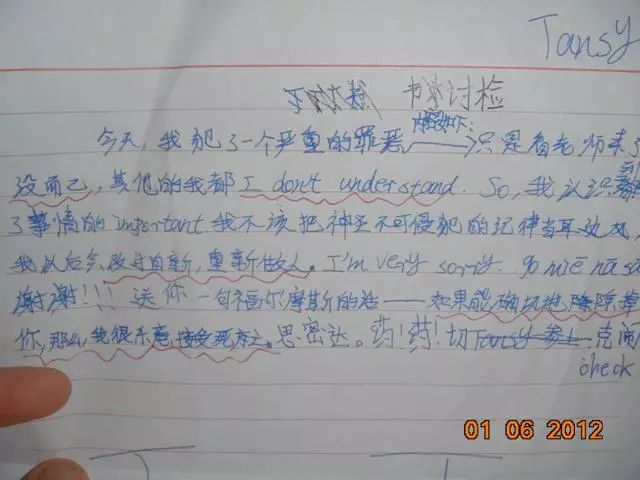 Tansy
书 讨检
内容如下:
今天,我犯了一个严重的罪恶——只是看老师来了
没而己,其他的我都 I don't understand. So,我认识到
了事情的 important 我不该把神圣不可侵犯的记律当耳边风,
我以后会改过自新,重新做人。I'm very sorry. go mié nā sā
谢谢!!!送你一句福尔摩斯的话——如果能确切地除掉
你,那么我很乐意接受死亡。思密达。药!药!切Tansy参上 克闹
check
01 06 2012